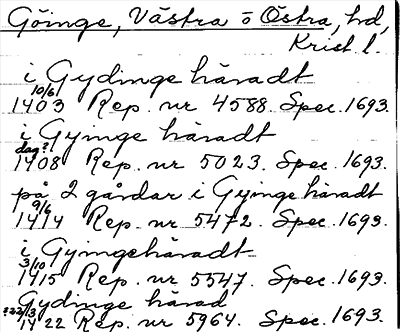 Göinge, Västra o Östra, hd,
Krist. l.
i Gydinge häradt
10/6 1403 Rep. nr 4588. Spec. 1693.
i Gyinge häradt
dag? 1408 Rep. nr 5023. Spec. 1693.
på 2 gårdar i Gyinge häradt
9/6 1414 Rep. nr 5472. Spec. 1693.
i Gyingehäradt
3/10 1415 Rep. nr 5547. Spec. 1693.
Gydinge härad
1422 Rep. nr 5964. Spec. 1693.